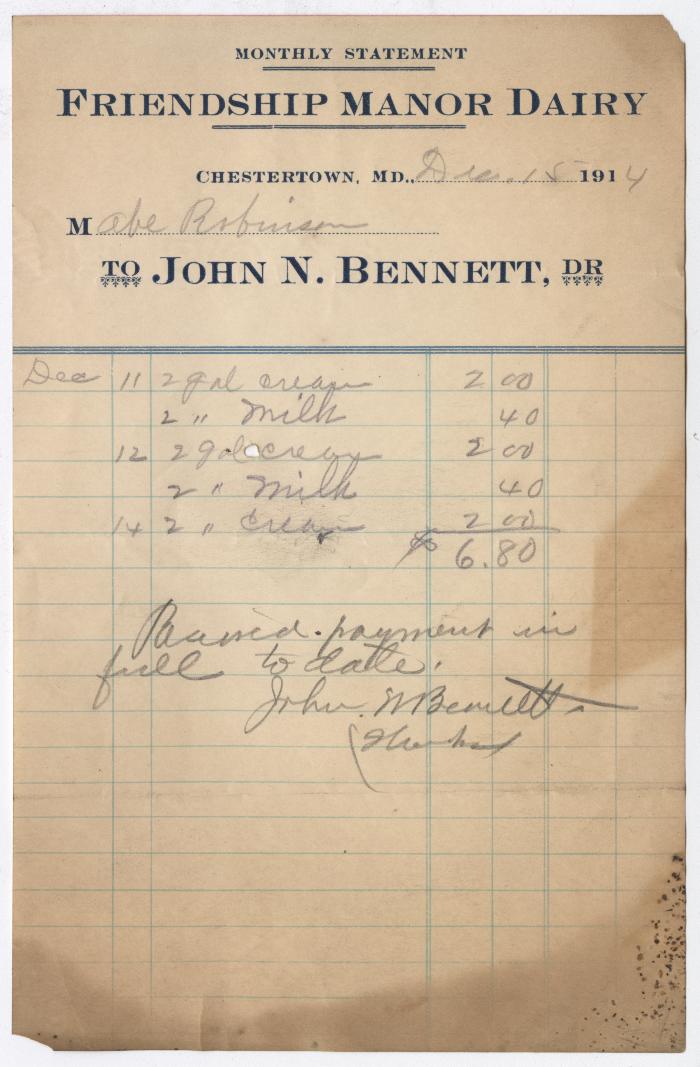 MONTHLY STATEMENT
FRIENDSHIP MANOR DAIRY
CHESTERTOWN, MD., Dec. 15 1914
M Abe Robinson
TO JOHN N. BENNETT, DR
Dec 11 2 gal cream 2 00
2 " Milk 40
12 2 gal cream 2 00
2 " Milk 40
14 2 " Cream 2 00
$ 6.80
Received payment in
full to date.
John N Bennett